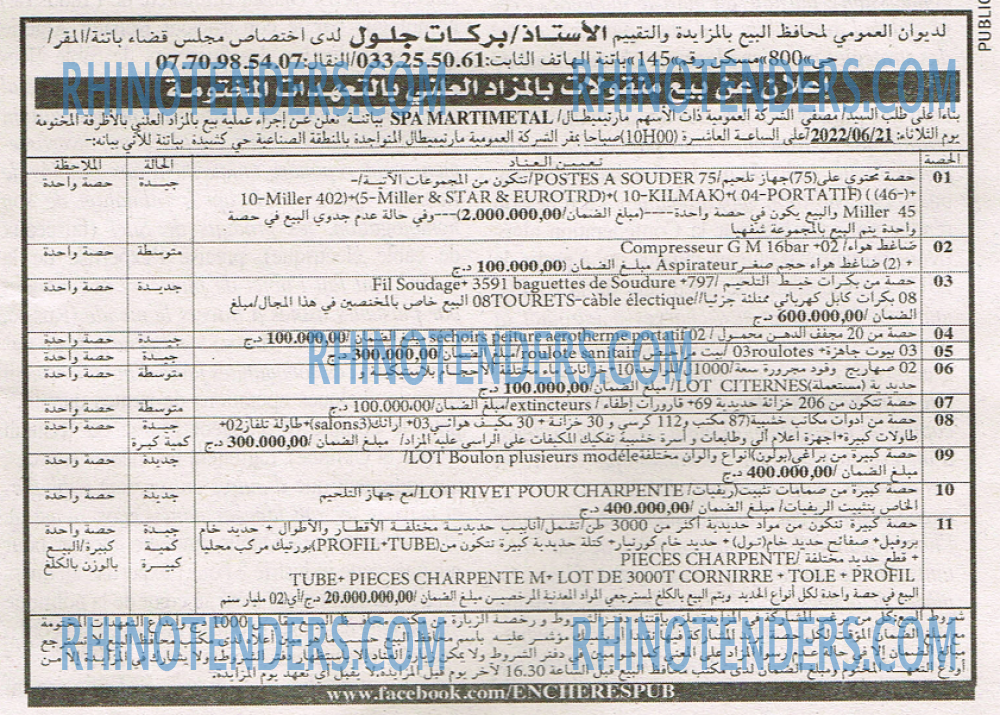 لديوان العمومي لمحافظ البيع بالمزايدة والتقييم الأستاذ/بركات جلول لدى اختصاص مجلس قضاء باتنة/المقر/
حي«800»مسكن رقم«145»باتنة الهاتف الثابت:033.25.50.61/النقال:07.70.98.54.07
إعلان عن بيع منقولات بالمزاد العلني بالتعهدات المختومة
بناءا على طلب السيد/ مصفي الشركة العمومية ذات الأسهم مارتيميطال/ SPA MARTIMETAL بباتنة نعلن عن إجراء عملية بيع بالمزاد العلني بالأظرفة المختومة
يوم الثلاثاء: 2022/06/21/على الساعة العاشرة (10H00)صباحا بمقر الشركة العمومية مارتيميطال المتواجدة بالمنطقة الصناعية حي كشيدة بباتنة للآتي بيانه:-
الحصة تعيين العتاد الحالة الملاحظة
01 حصة تحتوي على(75)جهاز تلحيم/POSTES A SOUDER 75/تتكون من المجموعات الآتية/- جيدة حصة واحدة
10-Miller 402)+(5-Miller & STAR & EUROTRD)+( 10-KILMAK)+( 04-PORTATIF) ( (46-)+
Miller 45 والبيع يكون في حصة واحدة----(مبلغ الضمان/2.000.000,00)---وفي حالة عدم جدوى البيع في حصة
واحدة يتم البيع بالمجموعة شفهيا
02 ضاغط هواء/ Compresseur G M 16bar +02 متوسطة حصة واحدة
+ (2) ضاغط هواء حجم صغير Aspirateur مبلغ الضمان (100.000,00 د.ج
03 حصة من بكرات خيط التلحيم /Fil Soudage+ 3591 baguettes de Soudure +797 جديدة حصة واحدة
08 بكرات كابل كهربائي ممتلئة جزئيا//08TOURETS-càble électique البيع خاص بالمختصين في هذا المجال/مبلغ
الضمان /600.000,00 د.ج
04 حصة من 20 مجفف الدهن محمول/ sechoirs peiture aerotherme portatif 02 مبلغ الضمان/100.000,00 د.ج جيدة حصة واحدة
05 03 بيوت جاهزة+ 03roulotes/ بيت مراحيض roulote sanitair/مبلغ الضمان/300.000,00 د.ج جيدة حصة واحدة
06 02 صهاريج وقود مجرورة سعة/1000ل للواحد+10 خزانات ماء مختلفة الأحجام بلاستيكية و متوسطة حصة واحدة
حديدية (مستعملة)LOT CITERNES/ مبلغ الضمان/100.000,00 د.ج
07 حصة تتكون من 206 خزانة حديدية +69 قارورات إطفاء / extincteurs/مبلغ الضمان/100.000,00 د.ج متوسطة حصة واحدة
08 حصة من أدوات مكاتب خشبية(87 مكتب و112 كرسي و 30 خزانة + 30 مكيف هوائي+03 أرائك(3salons)+طاولة تلفاز+02 جيدة حصة واحدة
طاولات كبيرة+اجهزة اعلام آلي وطابعات و أسرة خشبية تفكيك المكيفات على الراسي عليه المزاد/ مبلغ الضمان /300.000,00 د.ج كمية كبيرة
09 حصة كبيرة من براغي(بولون)أنواع والوان مختلفةLOT Boulon plusieurs modèle/ جديدة حصة واحدة
مبلغ الضمان /400.000,00 د.ج
10 حصة كبيرة من صمامات تثبيت(ريفيات/ LOT RIVET POUR CHARPENTE/مع جهاز التلحيم جديدة حصة واحدة
الخاص بتثبيت الريفيات/ مبلغ الضمان/400.000,00 د.ج
11 حصة كبيرة تتكون من مواد حديدية أكثر من 3000 طن/تشمل/أنابيب حديدية مختلفة الأقطار والأطوال + حديد خام جيدة حصة واحدة
بروفيل+ صفائح حديد خام(تول) + حديد خام كورنيار+ كتلة حديدية كبيرة تتكون من(PROFIL+TUBE)بورتيك مركب محليا كمية كبيرة/البيع
+ قطع حديد مختلفة /PIECES CHARPENTE كبيرة بالوزن بالكلغ
TUBE+ PIECES CHARPENTE M+ LOT DE 3000T CORNIRRE + TOLE + PROFIL
البيع في حصة واحدة لكل أنواع الحديد ويتم البيع بالكلغ لمسترجعي المواد المعدنية المرخصين مبلغ الضمان/20.000.000,00 د.ج/أي(02 مليار سنتم
أودع التعهد المختوم ومبلغ الضمان لدى مكتب محافظ البيع قبل الساعة 16.30 لآخر يوم قبل المزايدة.لا يقبل أي تعهد يوم المزايدة.
www.facebook.com/ENCHERESPUB
PUBLIC
RHINOTENDERS.COM RHINOTENDERS.COM
RHINOTENDERS.COM
RHINOTENDERS.COM RHINOTENDERS.COM